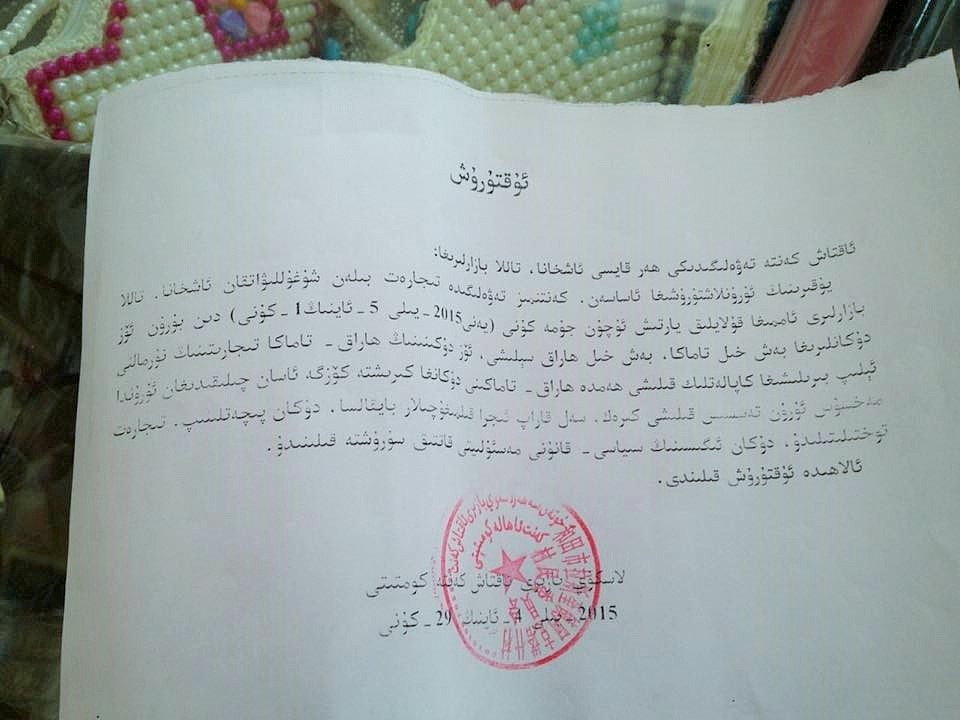 ئۇقتۇرۇش
ئاقتاش كەنتە تەۋەلىگىدىكى ھەر قايسى ئاشخانا، تاللا بازارلىرىغا:
يۇقىرىنىڭ ئۇرۇنلاشتۇرۇشىغا ئاساسەن. كەنتىمىز تەۋەلىگىدە تىجارەت بىلەن شۇغۇللىۋاتقان ئاشخانا. تاللا
بازارلىرى ئاممىغا قۇلايلىق يارتىش ئۈچۈن جۈمە كۈنى (يەنى2015-يىلى 5-ئاينىڭ1-كۈنى) دىن بۇرۇن ئۆز
دۇكانلىرىغا بەش خىل تاماكا. بەش خىل ھاراق سېلىشى. ئۆز دۇكىنىنىڭ ھاراق - تاماكا تىجارىتىنىڭ نۇرمالنى
ئېلىپ بىرىلىشىغا كاپالەتلىك قىلىشى ھەمدە ھاراق - تاماكىنى دۇكانغا كىرىشتە كۆزگە ئاسان چىلىقىدىغان ئورۇندا
مەخسۇس ئورۇن تەسىس قىلىشى كىرەك. سەل قاراپ ئىجرا قىلمىغۇچىلار بايئالسا. دۇكان پىچەتلىنىپ. تىجارەت
توختىلىتىلىدۇ. دۇكان ئىگىسىنىڭ سىياسى - قانۇنى مەسئۇلىيتى قاتتىق سۈرۈشتە قىلىنىدۇ.
ئالاھىدە ئۇقتۇرۇش قىلىندى.
لاسكۈي بازىرى ئاقتاش كەنتە كومتىتى
2015-يىلى 4-ئاينىڭ 29-كۈنى
كەنت ئاھالە كومىتېتى
村民委员会